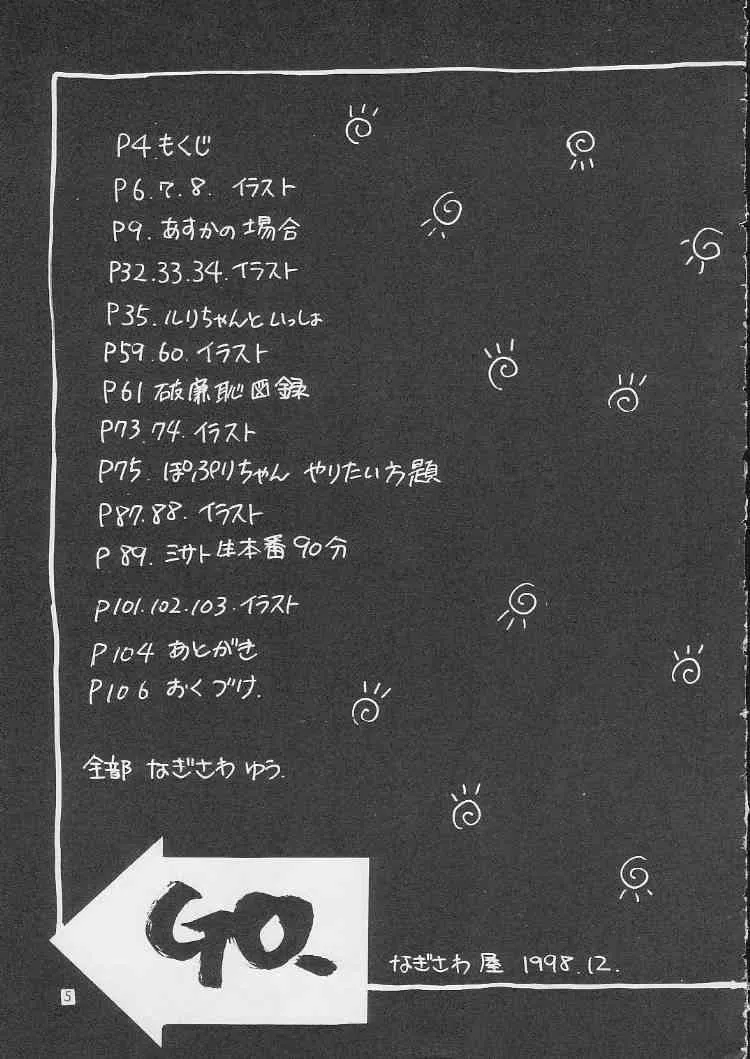 P4.もくじ
P6.7.8. イラスト
P9. あすかの場合
P32.33.34.イラスト
P35.ルリちゃんといっしょ
P59.60.イラスト
P61 破廉恥図録
P73.74.イラスト
P75. ぽぷりちゃん やりたい方題
P87.88.イラスト
P.89.ミサト生本番90分
P101.102.103.イラスト
P104 あとがき
P106 おくづけ.
全部 なぎさわ ゆう.
GO.
なぎさわ屋 1998.12.
5